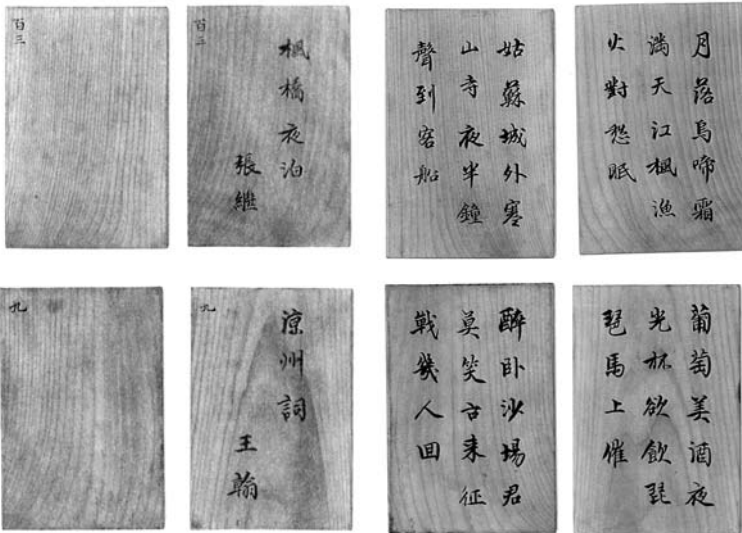 月落烏啼霜
滿天江楓漁
火對愁眠
姑蘇城外寒
山寺夜半鐘
聲到客船
楓橋夜泊
張繼
百三
百三
葡萄美酒夜
光杯欲飲琵
琶馬上催
醉臥沙場君
莫笑古來征
戰幾人回
涼州詞
王翰
九
九